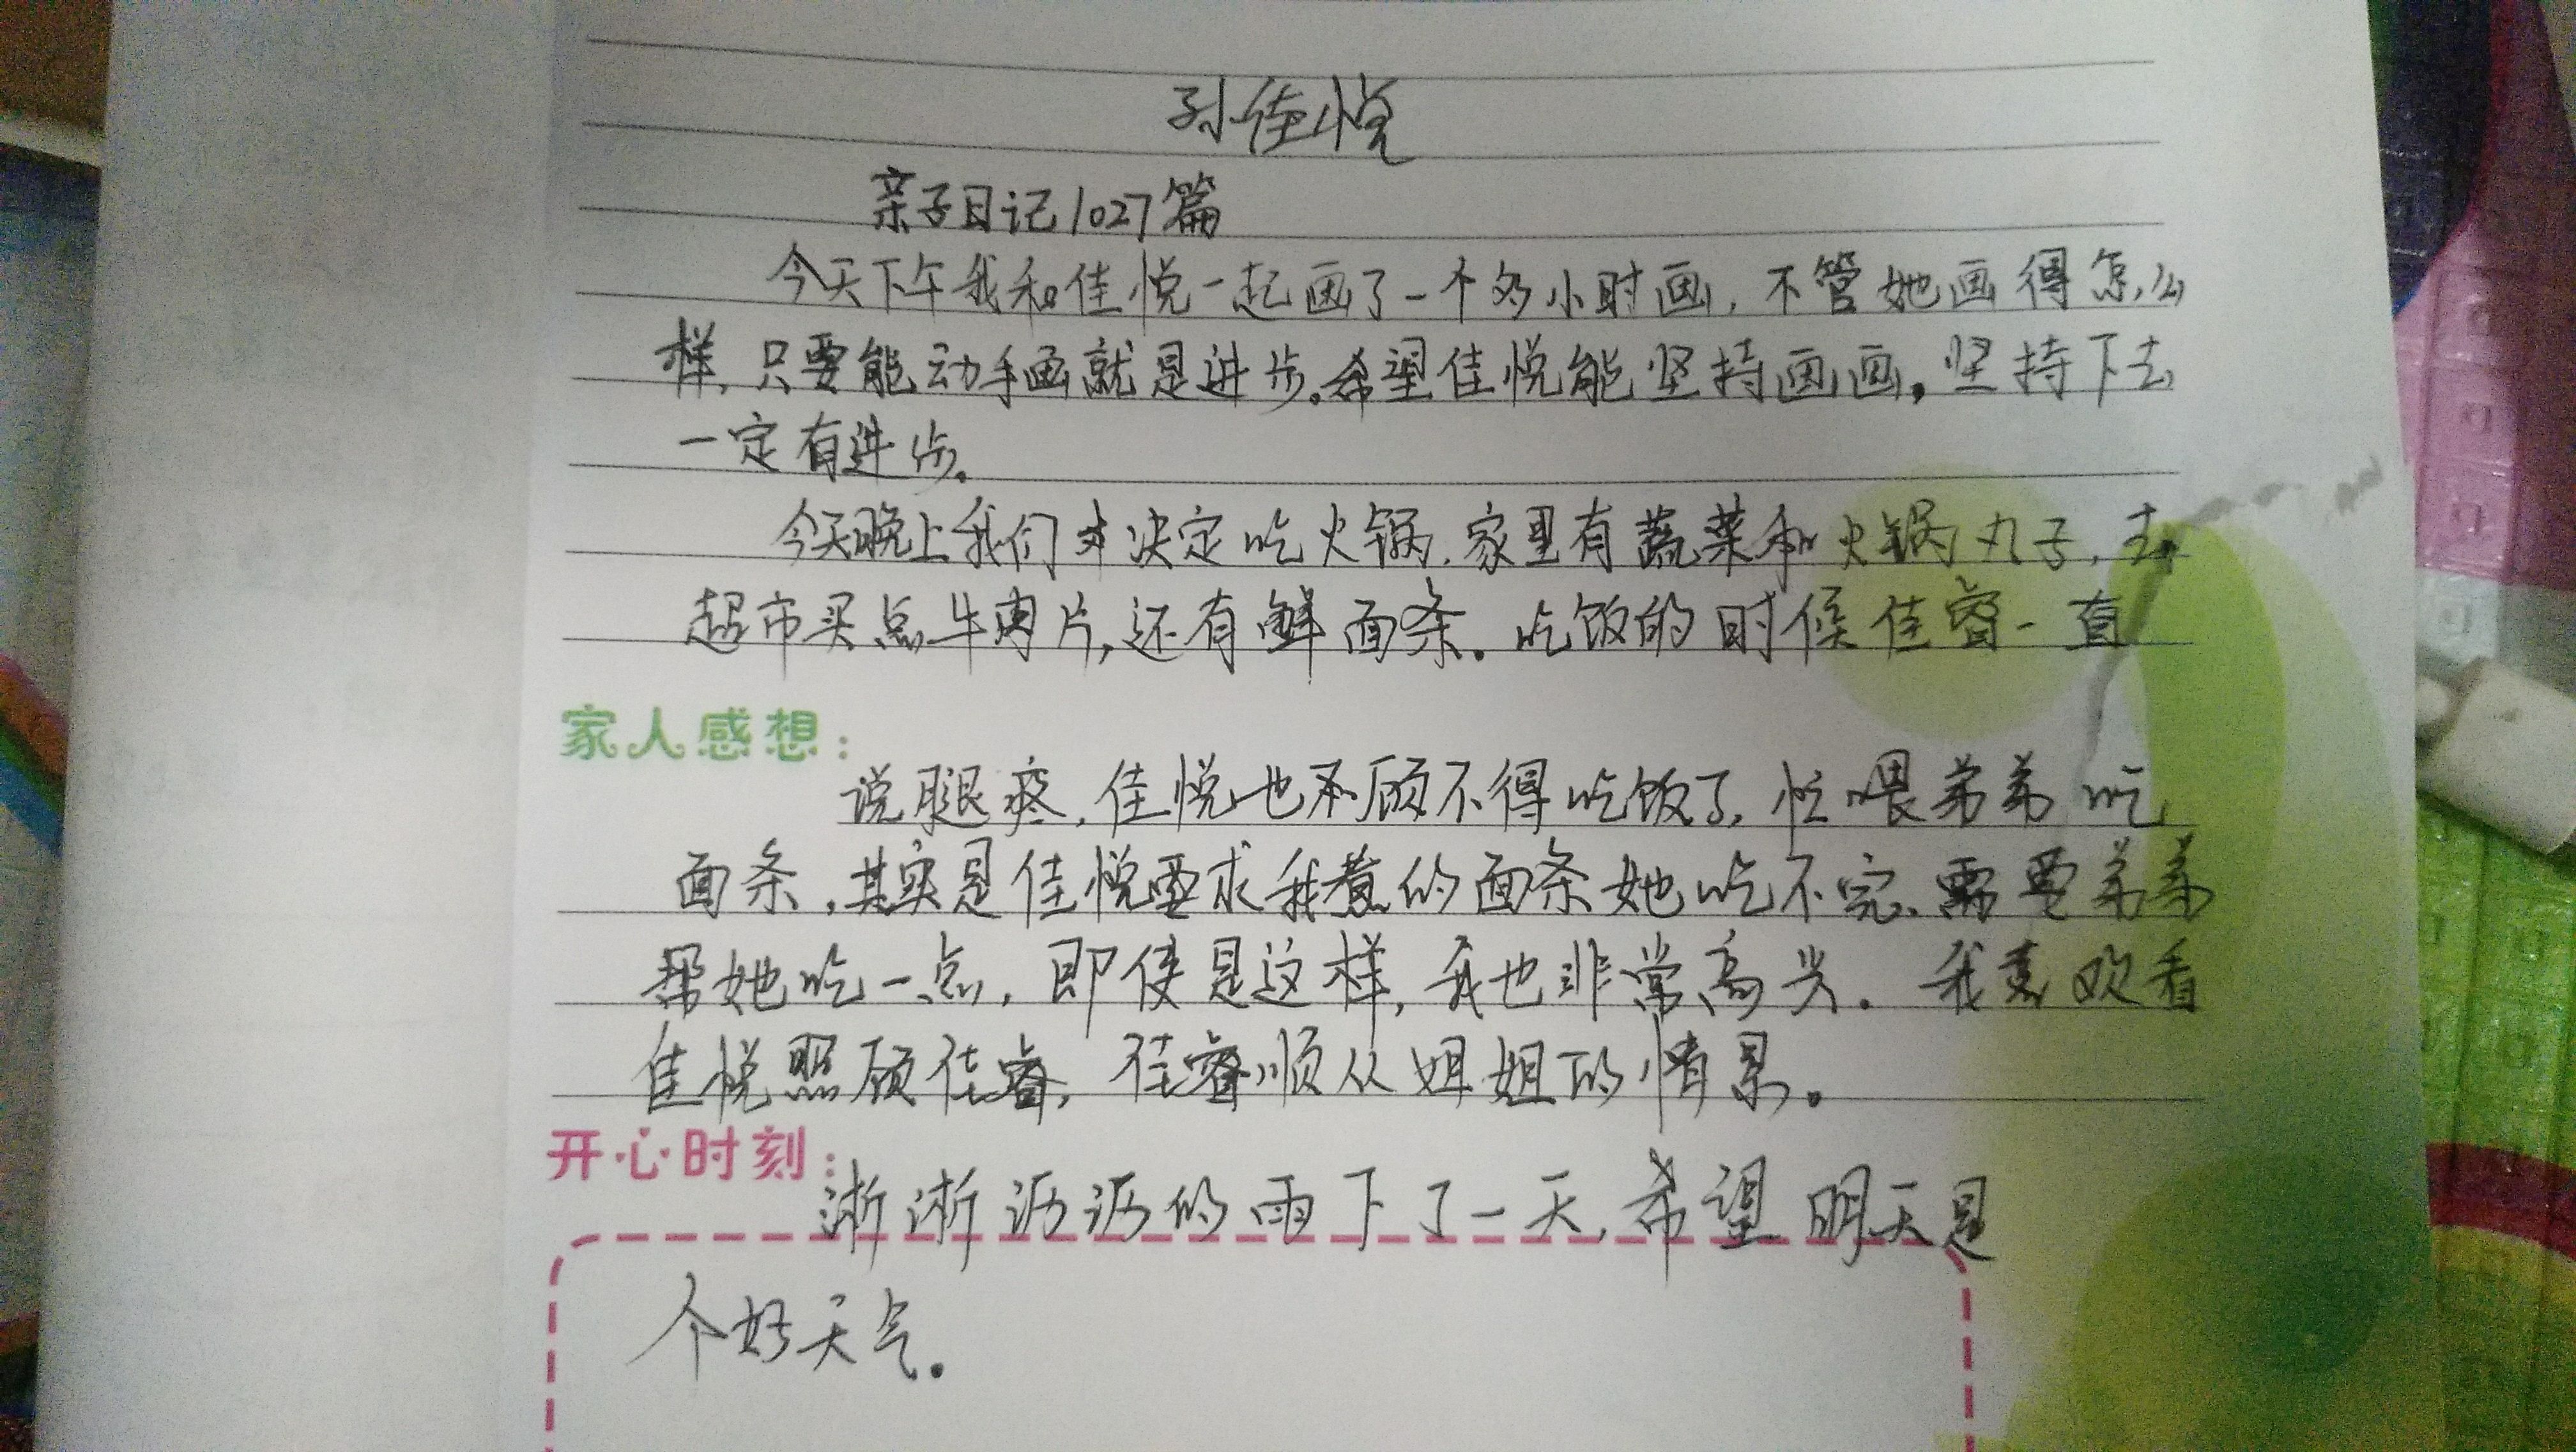 孙佳悦
亲子日记1027篇
今天下午我和佳悦一起画了一个多小时画,不管她画得怎么
样,只要能动手画就是进步。希望佳悦能坚持画画。坚持下去
一定有进步。
今天晚上我们决定吃火锅.家里有蔬菜和火锅丸子,去
超市买点牛肉片,还有鲜面条。吃饭的时候佳睿一直
家人感想:
说腿疼,佳悦也顾不得吃饭了,忙喂弟弟吃
面条,其实是佳悦要求我煮的面条她吃不完、需要弟弟
帮她吃一点,即使是这样,我也非常高兴.我喜欢看
佳悦照顾佳睿,佳睿顺从姐姐的情景。
开心时刻:
淅淅沥沥的雨下了一天,希望明天是
个好天气.